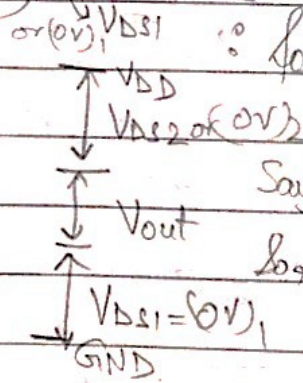 or (OV)₁ VDS1 ∴ fo
VDD
VDS2 or (OV)₂
Say
Vout
VDS1 = (OV)₁
GND